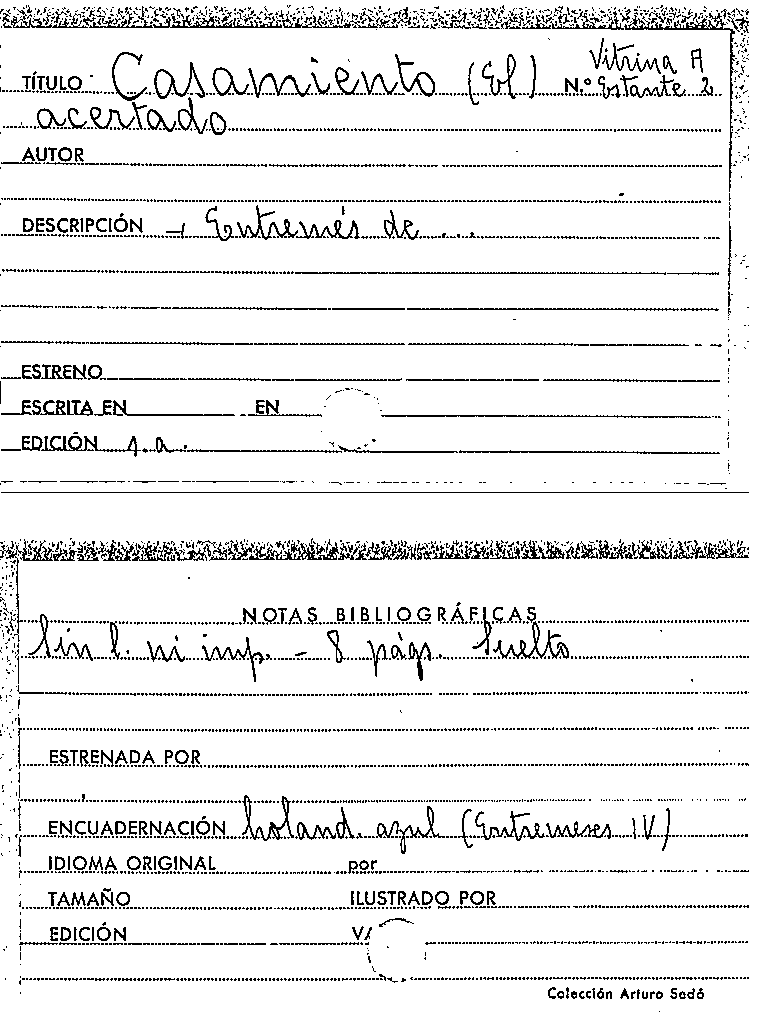 Vitrina A
TÍTULO Casamiento (El) N.º Estante 2
acertado
AUTOR
DESCRIPCIÓN → Entremés de ...
ESTRENO
ESCRITA EN EN
EDICIÓN s.a.
NOTAS BIBLIOGRÁFICAS
Sin l. ni imp. - 8 págs. Suelto
ESTRENADA POR
ENCUADERNACIÓN holand. azul (Entremeses IV)
IDIOMA ORIGINAL por
TAMAÑO ILUSTRADO POR
EDICIÓN
Colección Arturo Sedó